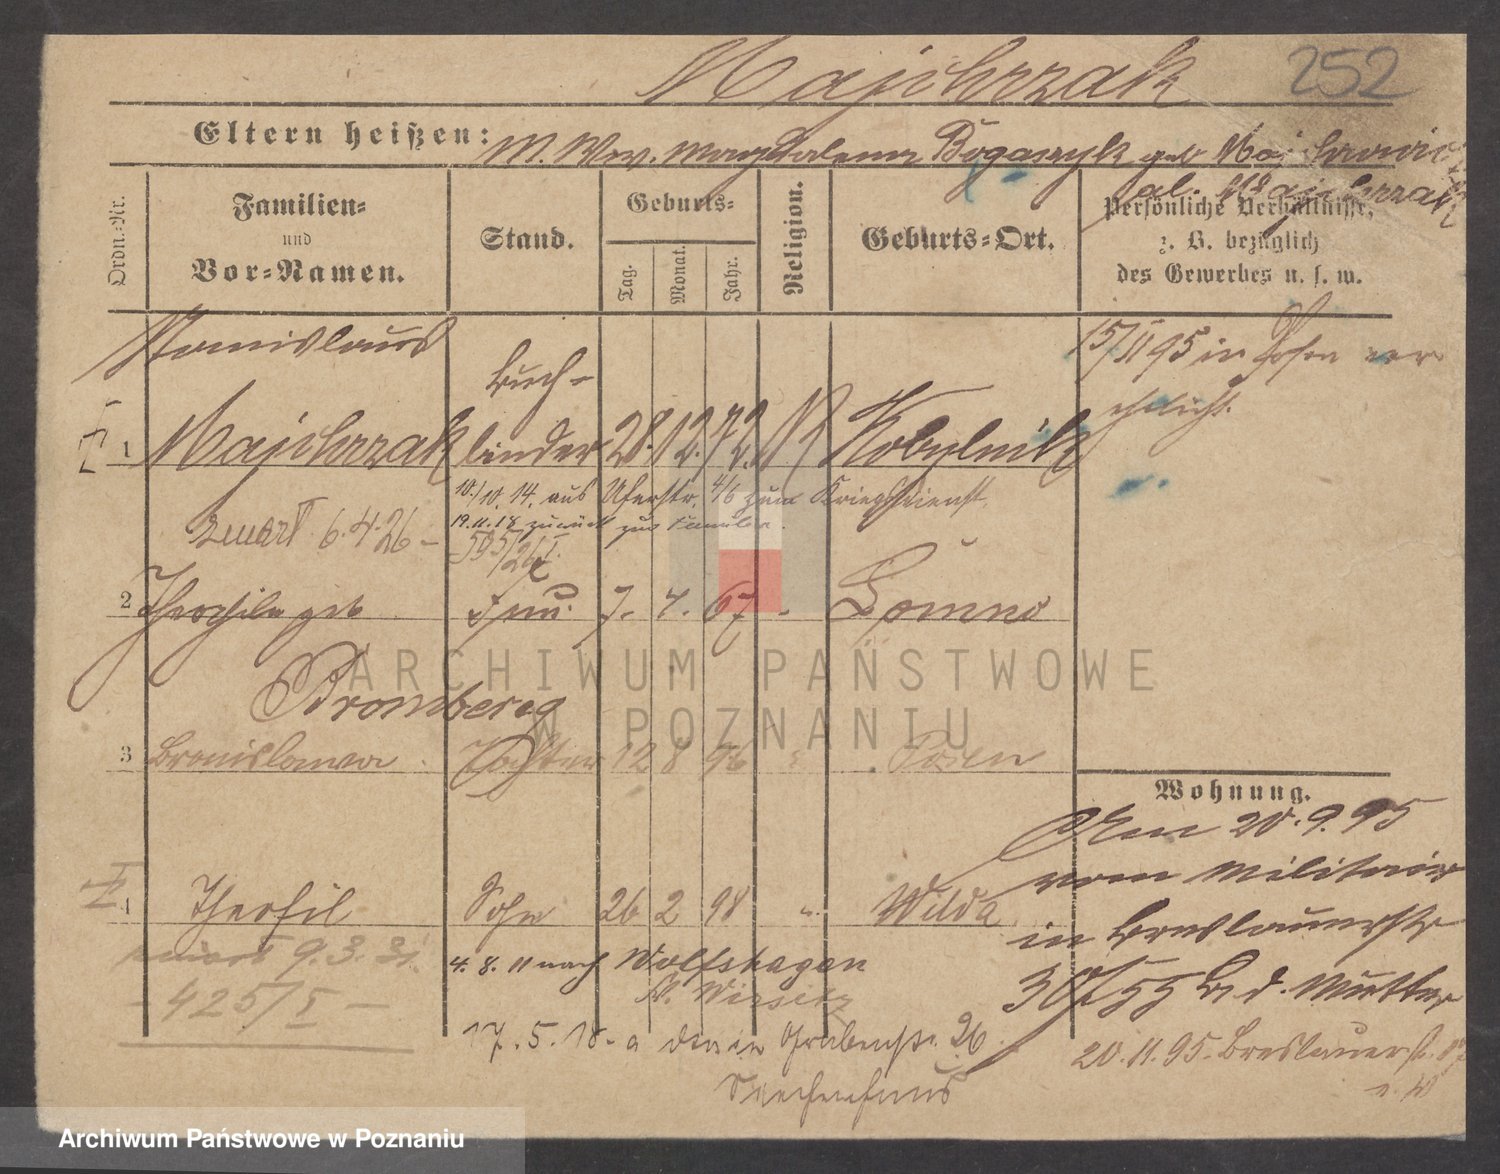 Majchrzak 252
Eltern heißen: M. Wwe. Magdalena Bogaczyk geb. Majchrowicz
al. Majchrzak
Ordn.-Nr.
Familien-
und
Vor-Namen.
Stand.
Geburts-
Tag.
Monat.
Jahr.
Religion.
Geburts-Ort.
Persönliche Verhältnisse,
z. B. bezüglich
des Gewerbes u. s. w.
Stanislaus
Buch-
1 Majchrzak binder 28. 12. 72. K Kobylnik
15/11 95 in Posen ver
ehelicht.
10./10. 14. aus Uferstr. 4/6 zum Kriegsdienst.
19.11.18 zurück zur Familie.
zmarł 6.4.26 - 595/26 I.
2 Theophila geb. Frau 7. 4. 67 - Lomno
Bromberg
3 Bronislawa Tochter 12 8 96 Posen
4 Theofil Sohn 26 2 98 Wilda
9.3.31.
- 425/I -
4. 8. 11 nach Wolfshagen
Kr. Wirsitz
17. 5. 18. Grabenstr. 26
Wohnung.
20. 9. 95
vom Militair
in Breslauerstr
30/ b d. Mutter
20. 11. 95. Breslauerst.
ARCHIWUM PAŃSTWOWE
W POZNANIU
Archiwum Państwowe w Poznaniu